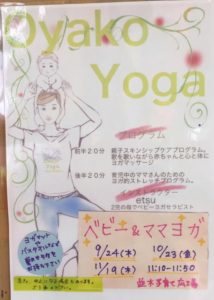 Oyako
Yoga
プログラム
前半20分
親子スキンシップケアプログラム。
歌を歌いながら赤ちゃんと心と体に
ヨガマッサージ
後半20分
育児中のママさんのための
ヨガ的ストレッチプログラム。
インストラクター
etsu
2児の母でベビーヨガセラピスト
ヨガマット
や
バスタオルなど
お持ち下さい
ベビー&ママヨガ
9/24(木) 10/23(金)
11/19(木) 11:10-11:50